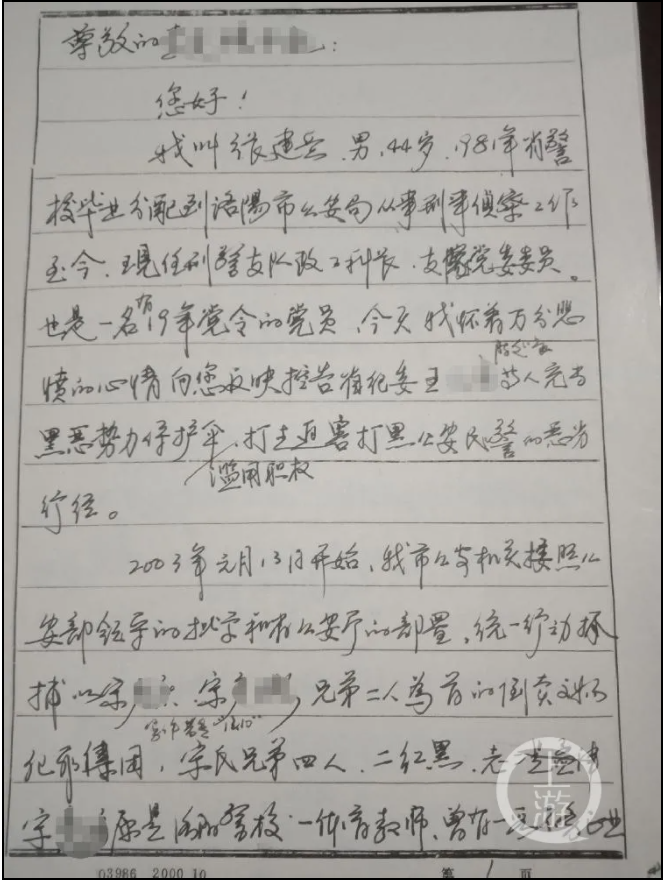 尊敬的
您好！
我叫张建芸，男，44岁，1981年省警
校毕业分配到洛陽市公安局从事刑事侦察工作
至今，现任刑警支队政工科长，支队党委委员。
也是一名有19年党令的党员，今天我怀着万分悲
愤的心情向您反映控告省纪委王 等人充当
黑恶势力保护伞，滥用职权 打击迫害打黑公安民警的恶劣
行径。
2003年元月13日开始，我市公安机关按照公
安部领导的批字和省公安厅的部置，统一行动抓
捕以宋 宋 兄弟二人為首的倒卖文物
犯罪集团，宋氏兄弟四人，二红黑，老
宋 原是洛阳警校一体育教师，曾有一
上游
03986 2000.10
第1页